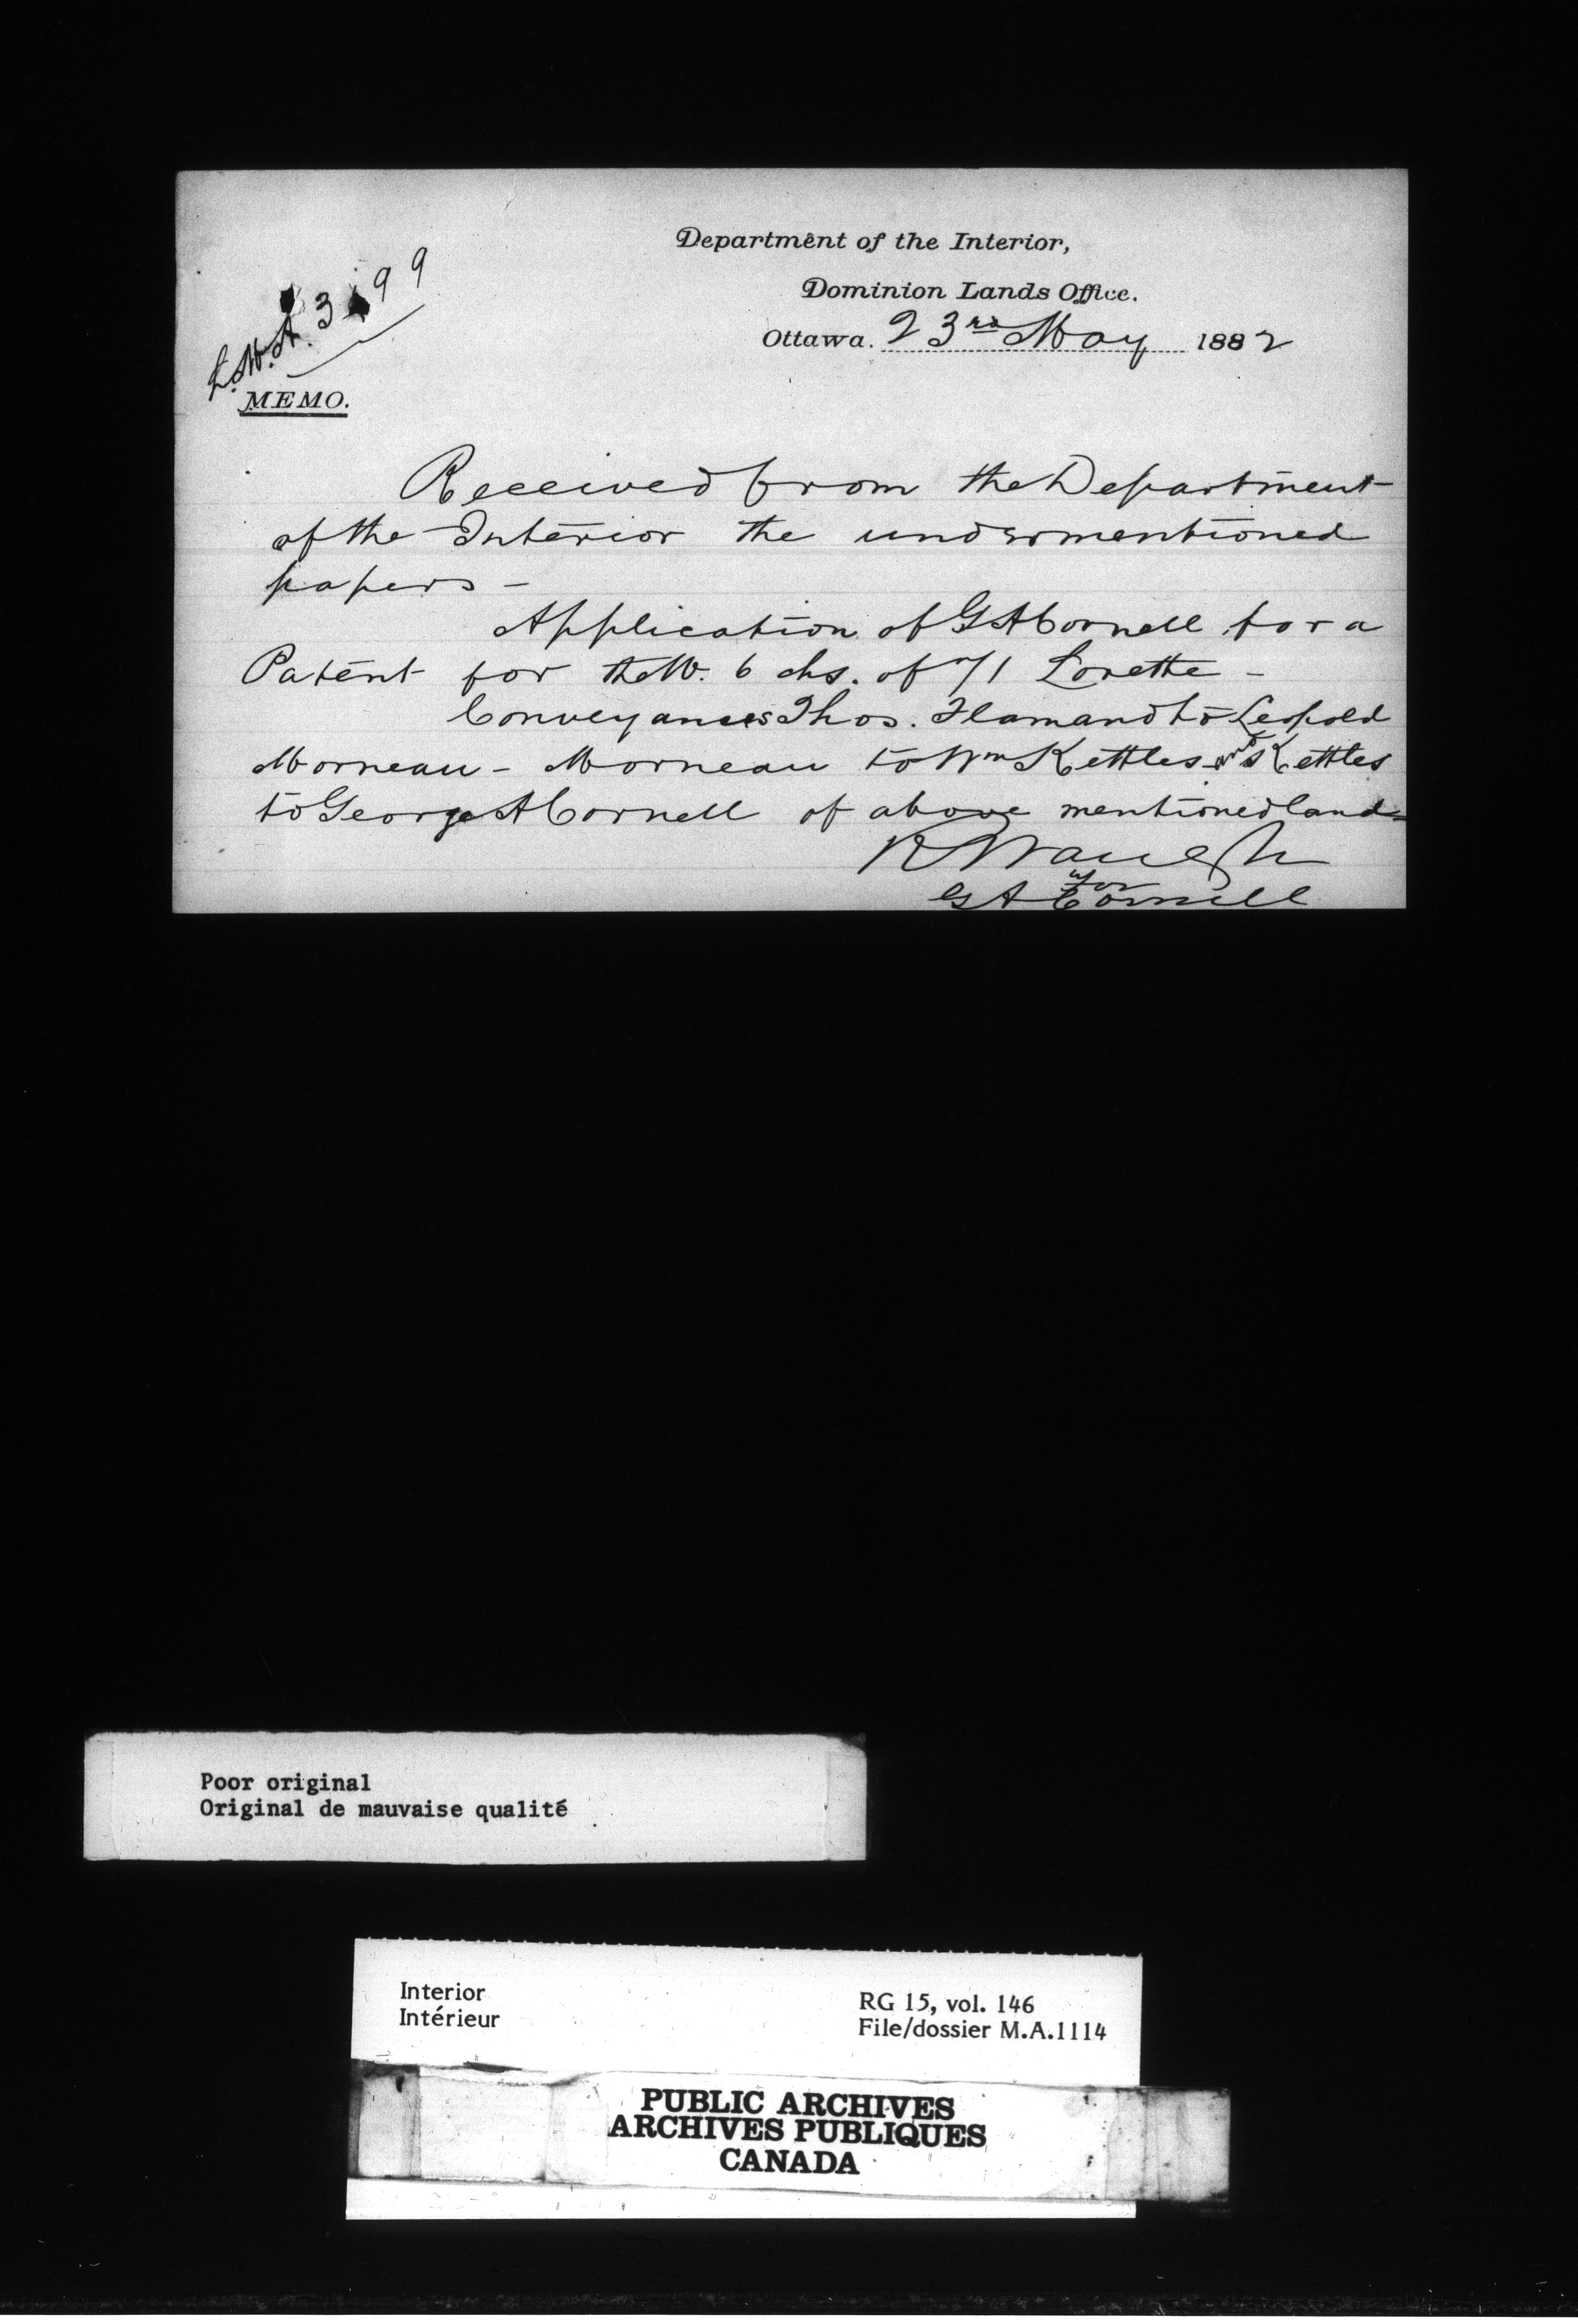 Department of the Interior,
Dominion Lands Office.
Ottawa. 23rd May 1882
MEMO.
Received from the Department
of the Interior the undermentioned
papers -
Application of G A Cornell for a
Patent for the W. 6 chs. of 71 Lorette -
Conveyances Thos. Flamand to Leopold
Morneau - Morneau to Wm Kettles and Kettles
to George A Cornell of above mentioned land
R Waugh
for
G A Cornell
Poor original
Original de mauvaise qualité
Interior
Intérieur
RG 15, vol. 146
File/dossier M.A.1114
PUBLIC ARCHIVES
ARCHIVES PUBLIQUES
CANADA